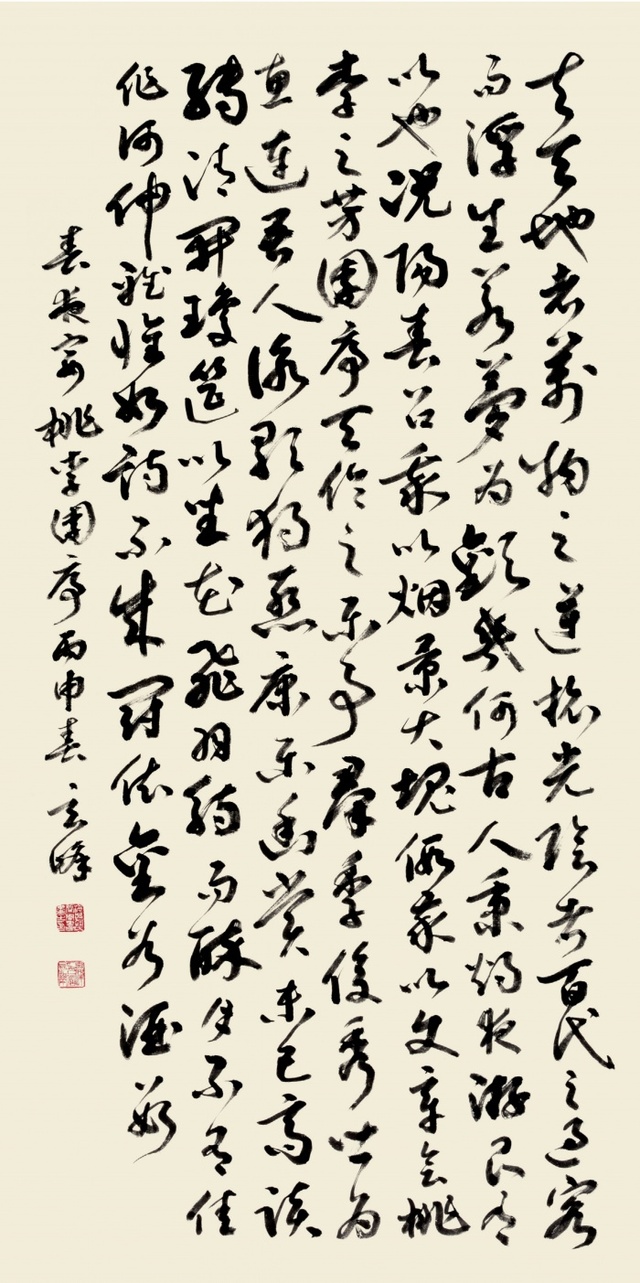 夫天地者萬物之逆旅光陰者百代之過客
而浮生若夢為歡幾何古人秉燭夜游良有
以也況陽春召我以烟景大塊假我以文章會桃
李之芳園序天倫之樂事羣季俊秀皆為
惠連吾人詠歌獨慚康樂幽賞未已高談
轉清開瓊筵以坐花飛羽觴而醉月不有佳
作何伸雅懷如詩不成罰依金谷酒數
春夜宴桃李園序丙申春峰